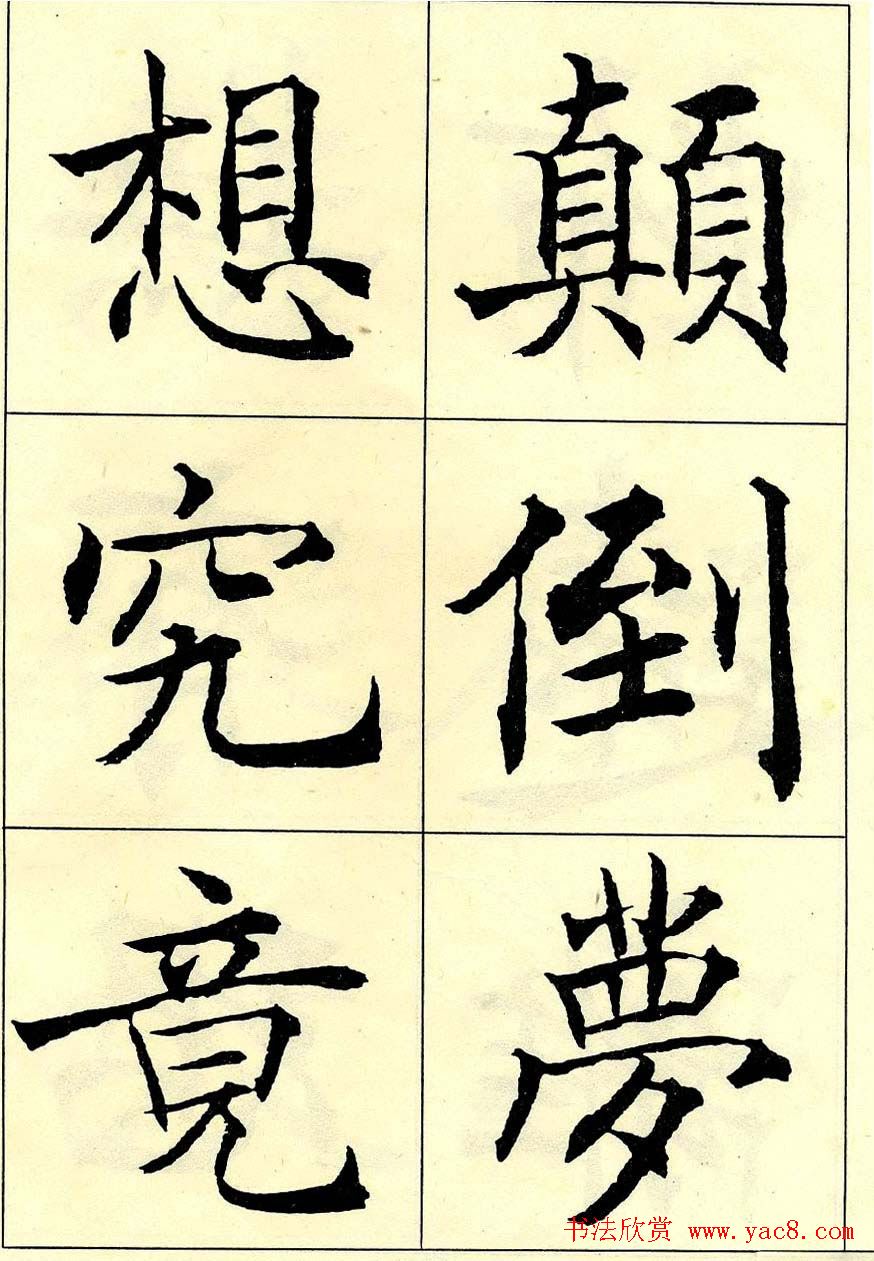 顛倒夢
想究竟
书法欣赏 www.yac8.com